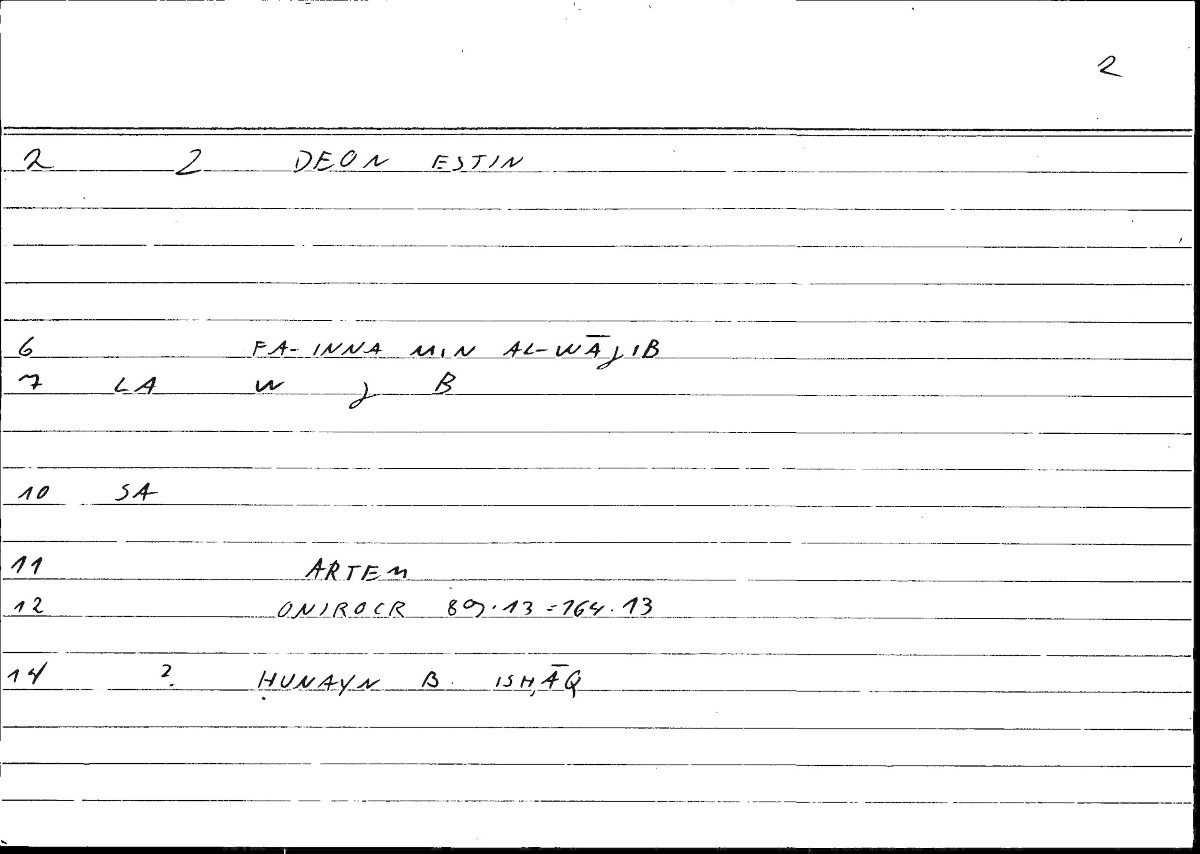 2
2 2 DEON ESTIN
6 FA-INNA MIN AL-WĀJIB
7 LA W J B
10 SA
11 ARTEM
12 ONIROCR 89.13=164.13
14 ? ḤUNAYN B. ISḤĀQ